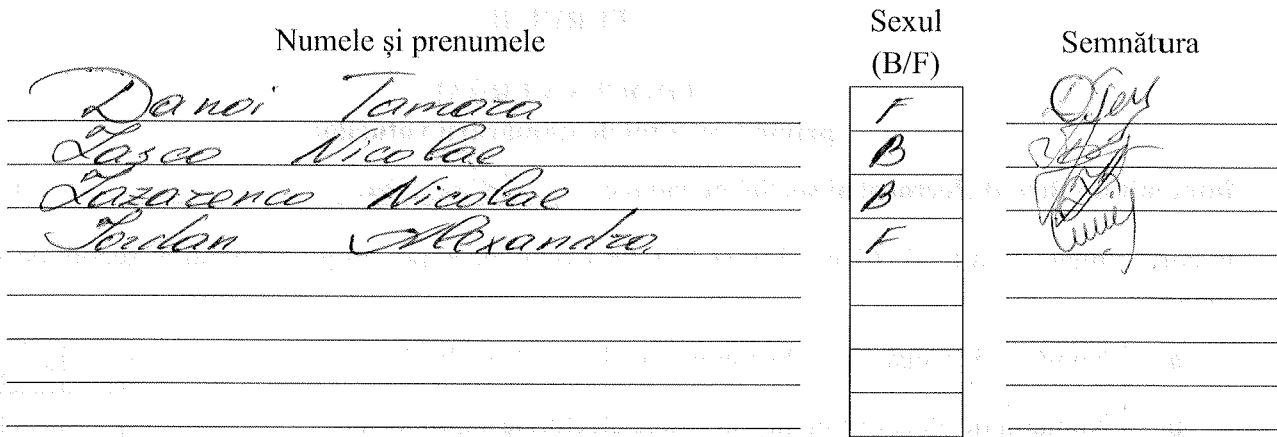 Numele și prenumele Sexul (B/F) Semnătura
Danoi Tamara F
Lașco Nicolae B
Lazarenco Nicolae B
Iordan Alexandra F